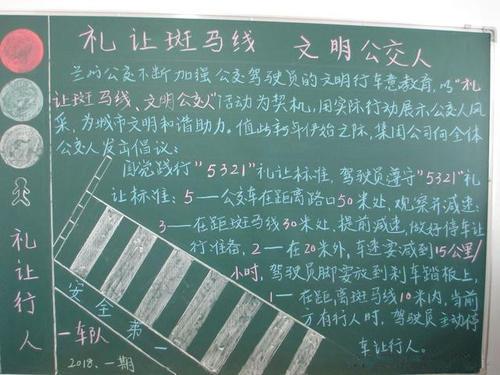 礼让斑马线 文明公交人
兰州公交不断加强公交驾驶员的文明行车意教育,以"礼
让斑马线、文明公交人"活动为契机,用实际行动展示公交人风
采,为城市文明和谐助力。值此新年伊始之际,集团公司向全体
公交人发出倡议:
自觉践行"5321"礼让标准,驾驶员遵守"5321"礼
让标准:5—公交车在距离路口50米处,观察并减速、
3—在距斑马线30米处,提前减速,做好停车让
行准备,2—在20米外,车速要减到15公里/
小时,驾驶员脚要放到刹车踏板上,
1—在距离斑马线10米内,当前
方有行人时,驾驶员主动停
车让行人。
礼让行人
安全第一
一车队
2018.一期